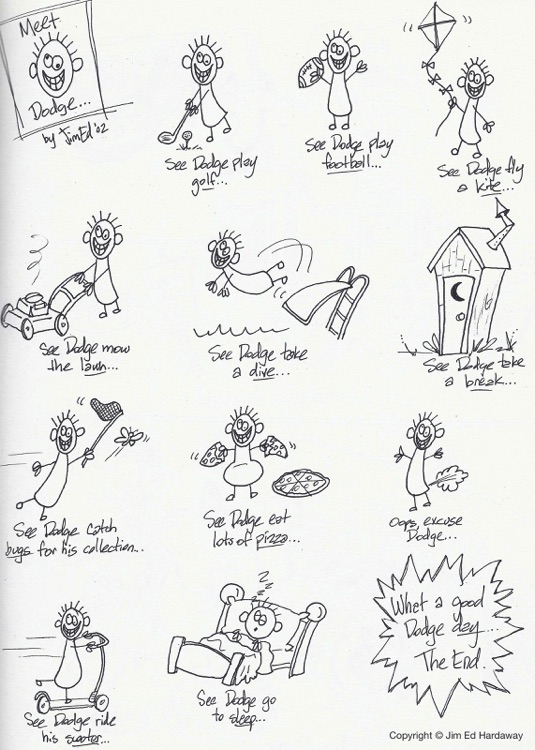 Meet
Dodge...
by JimEd '02
See Dodge play
golf...
See Dodge play
football...
See Dodge fly
a kite...
See Dodge mow
the lawn...
See Dodge take
a dive...
See Dodge take
a break...
See Dodge catch
bugs for his collection...
See Dodge eat
lots of pizza...
Oops, excuse
Dodge...
See Dodge ride
his scooter...
z z z
See Dodge go
to sleep...
What a good
Dodge day....
The End.
Copyright © Jim Ed Hardaway